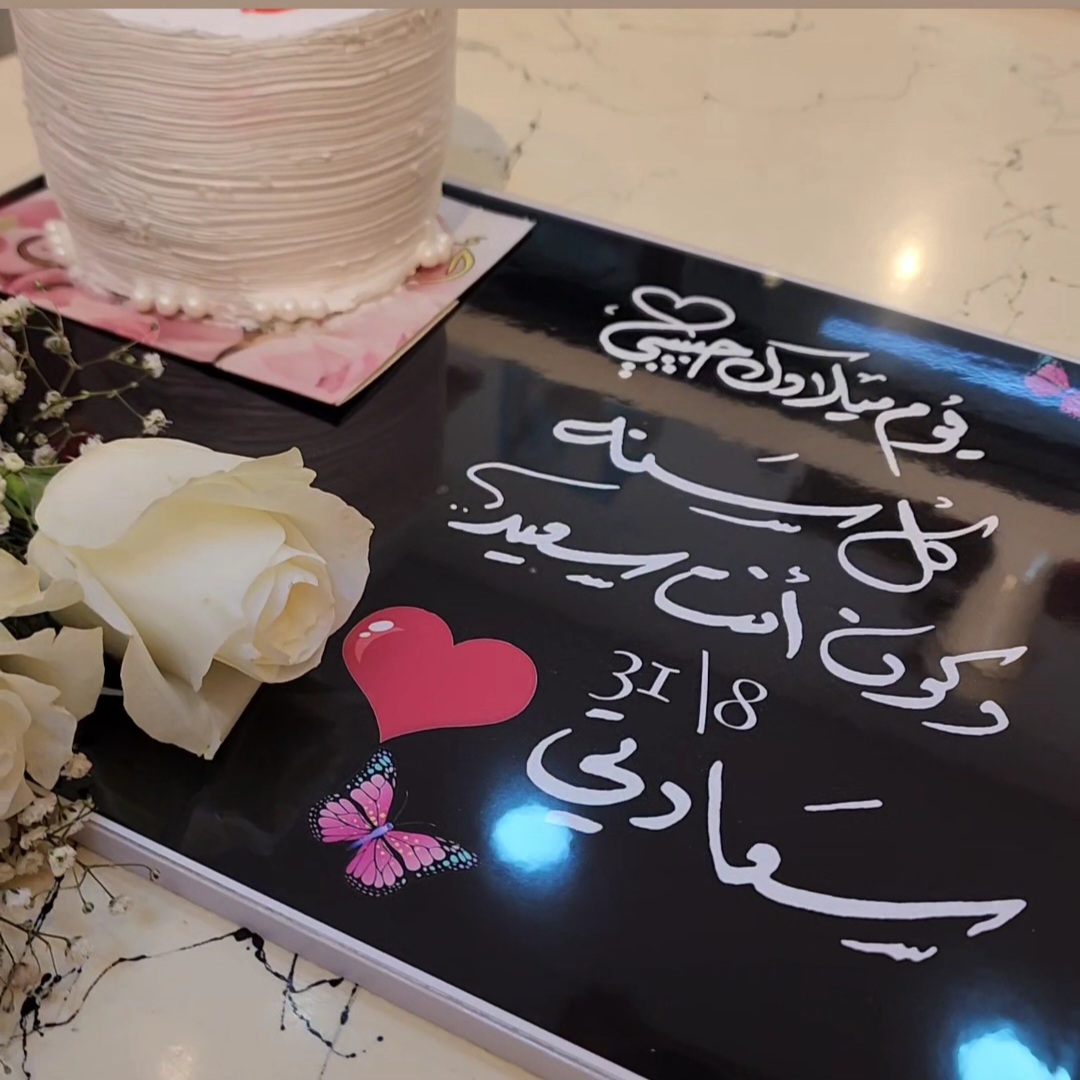 يوم ميلادك حبيبي
كل سنه
وكون أنت سعيد
31/8
سعادتي